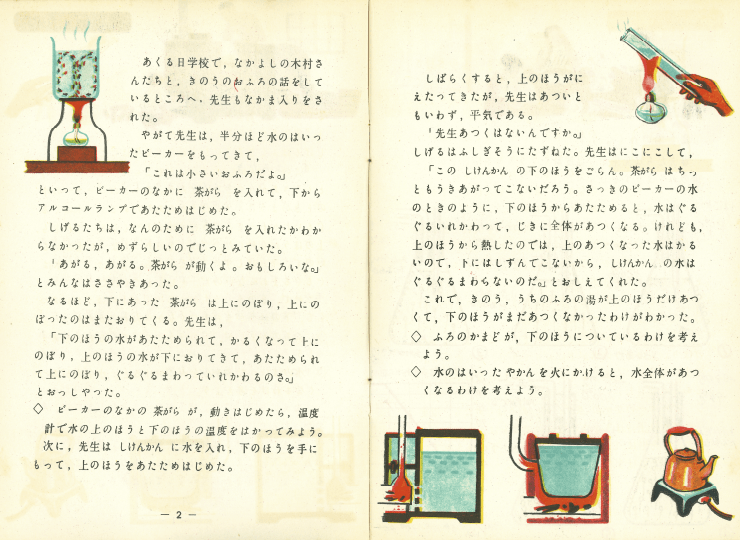 あくる日学校で，なかよしの木村さ
んたちと，きのうのおふろの話をして
いるところへ，先生もなかま入りをさ
れた。
やがて先生は，半分ほど水のはいっ
たビーカーをもってきて，
「これは小さいおふろだよ。」
といって，ビーカーのなかに 茶がら を入れて，下から
アルコールランプであたためはじめた。
しげるたちは，なんのために 茶がら を入れたかわか
らなかったが，めずらしいのでじっとみていた。
「あがる，あがる。茶がら が動くよ。おもしろいな。」
とみんなはささやきあった。
なるほど，下にあった 茶がら は上にのぼり，上にの
ぼったのはまたおりてくる。先生は，
「下のほうの水があたためられて，かるくなって上に
のぼり，上のほうの水が下におりてきて，あたためられ
て上にのぼり，ぐるぐるまわっていれかわるのさ。」
とおっしゃった。
◇ ビーカーのなかの 茶がら が，動きはじめたら，温度
計で水の上のほうと下のほうの温度をはかってみよう。
次に，先生は しけんかん に水を入れ，下のほうを手に
もって，上のほうをあたためはじめた。
— 2 —
しばらくすると，上のほうがに
えたってきたが，先生はあついと
もいわず，平気である。
「先生あつくはないんですか。」
しげるはふしぎそうにたずねた。先生はにこにこして，
「この しけんかん の下のほうをごらん。茶がら はちっ
ともうきあがってこないだろう。さっきのビーカーの水
のときのように，下のほうからあたためると，水はぐる
ぐるいれかわって，じきに全体があつくなる。けれども，
上のほうから熱したのでは，上のあつくなった水はかる
いので，下にはしずんでこないから，しけんかん の水は
ぐるぐるまわらないのだ。」とおしえてくれた。
これで，きのう，うちのふろの湯が上のほうだけあつ
くて，下のほうがまだあつくなかったわけがわかった。
◇ ふろのかまどが，下のほうについているわけを考え
よう。
◇ 水のはいった やかんを火にかけると，水全体があつ
くなるわけを考えよう。